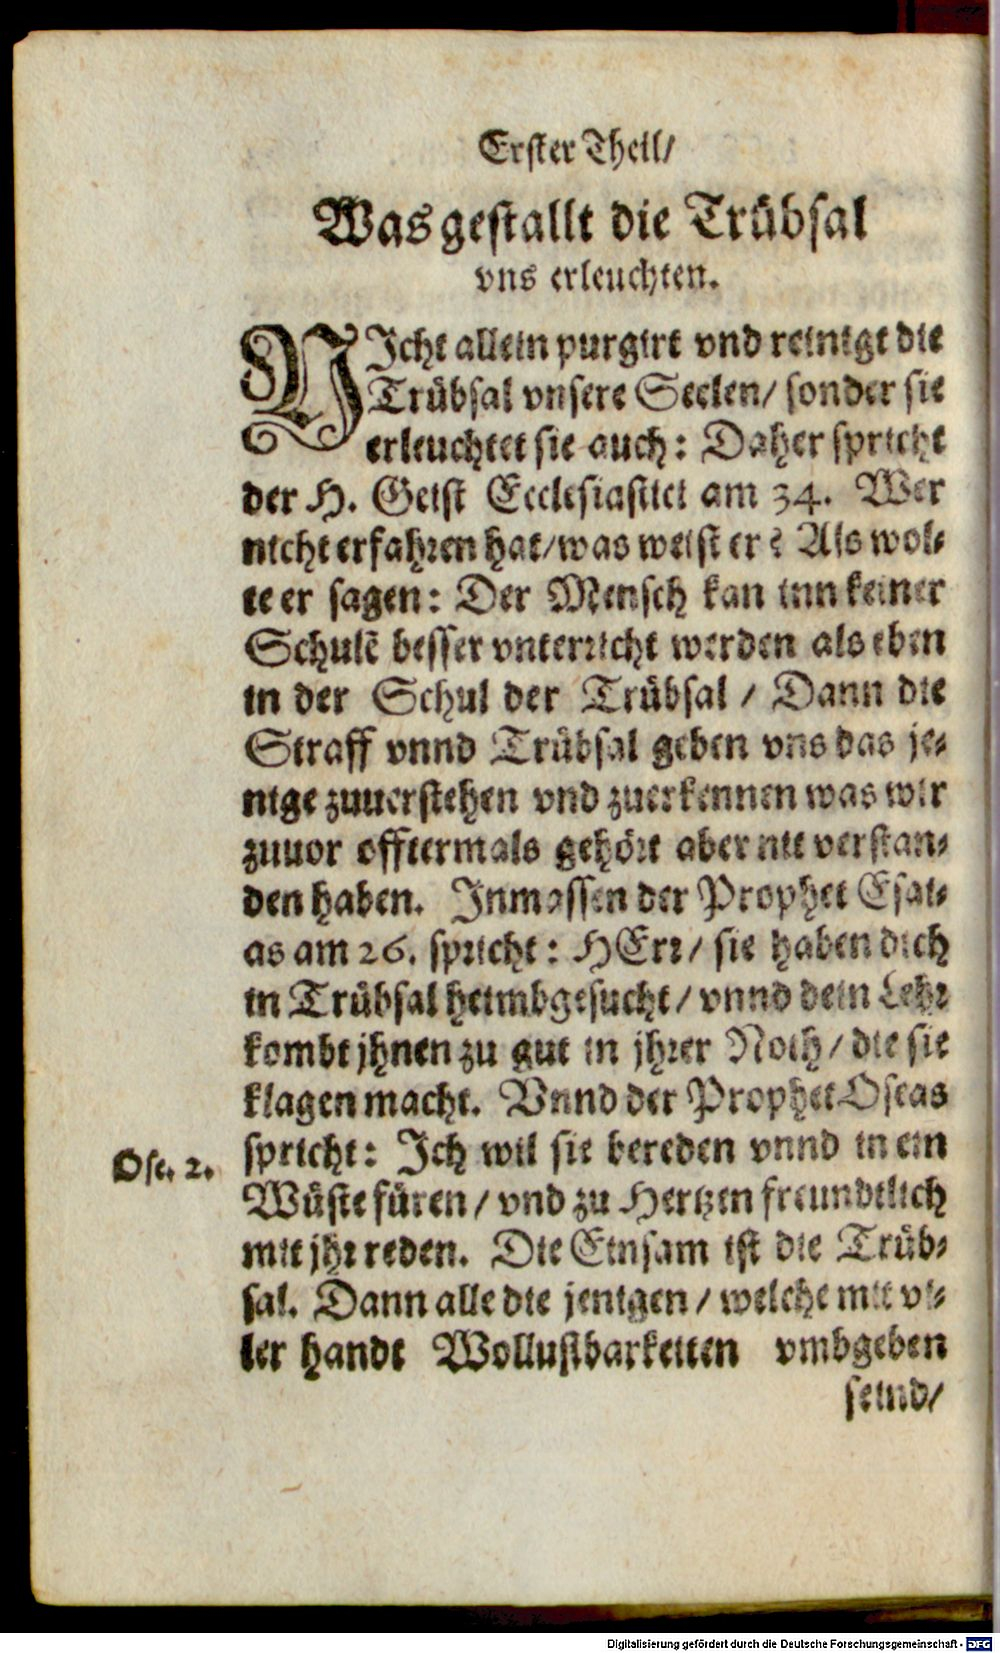 Erster Theil/
Was gestallt die Trübsal
vns erleuchten.
NIcht allein purgirt vnd reinigt die
Trübsal vnsere Seelen/ sonder sie
erleuchtet sie auch: Daher spricht
der H. Geist Ecclesiastici am 34. Wer
nicht erfahren hat/was weist er? Als wol-
te er sagen: Der Mensch kan inn keiner
Schulē besser vnterricht werden als eben
in der Schul der Trübsal / Dann die
Straff vnnd Trübsal geben vns das je-
nige zuuerstehen vnd zuerkennen was wir
zuuor offtermals gehört aber nit verstan-
den haben. Inmassen der Prophet Esai-
as am 26. spricht: HErr/ sie haben dich
in Trübsal heimbgesucht/ vnnd dein Lehr
kombt jhnen zu gut in jhrer Noth/ die sie
klagen macht. Vnnd der Prophet Oseas
Ose. 2.
spricht: Ich wil sie bereden vnnd in ein
Wüste füren/ vnd zu Hertzen freundtlich
mit jhr reden. Die Einsam ist die Trüb-
sal. Dann alle die jenigen/ welche mit vi-
ler handt Wollustbarkeiten vmbgeben
seind/
Digitalisierung gefördert durch die Deutsche Forschungsgemeinschaft - DFG